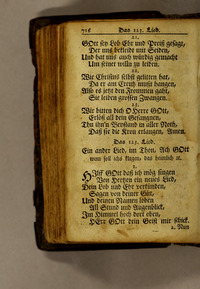 716 Das 123. Lied.
21.
GOtt sey Lob Ehr und Preiß gesagt,
Der uns bekleidt mit Seiden,
Und hat uns auch würdig gemacht
Um seinet willn zu leiden.
22.
Wie Christus selbst gelitten hat,
Da er am Creutz mußt hangen,
Also es jetzt den Frommen gaht,
Sie leiden grossen Zwangen.
23.
Wir bitten dich O HErre GOtt,
Erlöß all dein Gefangnen,
Thu ihn'n Beystand in aller Noth,
Daß sie die Kron erlangen, Amen.
Das 123. Lied.
Ein ander Lied, im Thon, Ach GOtt
wem soll ichs klagen, das heimlich rc.
1.
Hilff GOtt daß ich mög singen
Von Hertzen ein neues Lied,
Dein Lob und Ehr verkünden,
Sagen von deiner Güt,
Und deinen Namen loben
All Stund und Augenblick,
Im Himmel hoch dort oben,
HErr GOtt dein Geist mir schick.
2. Nun